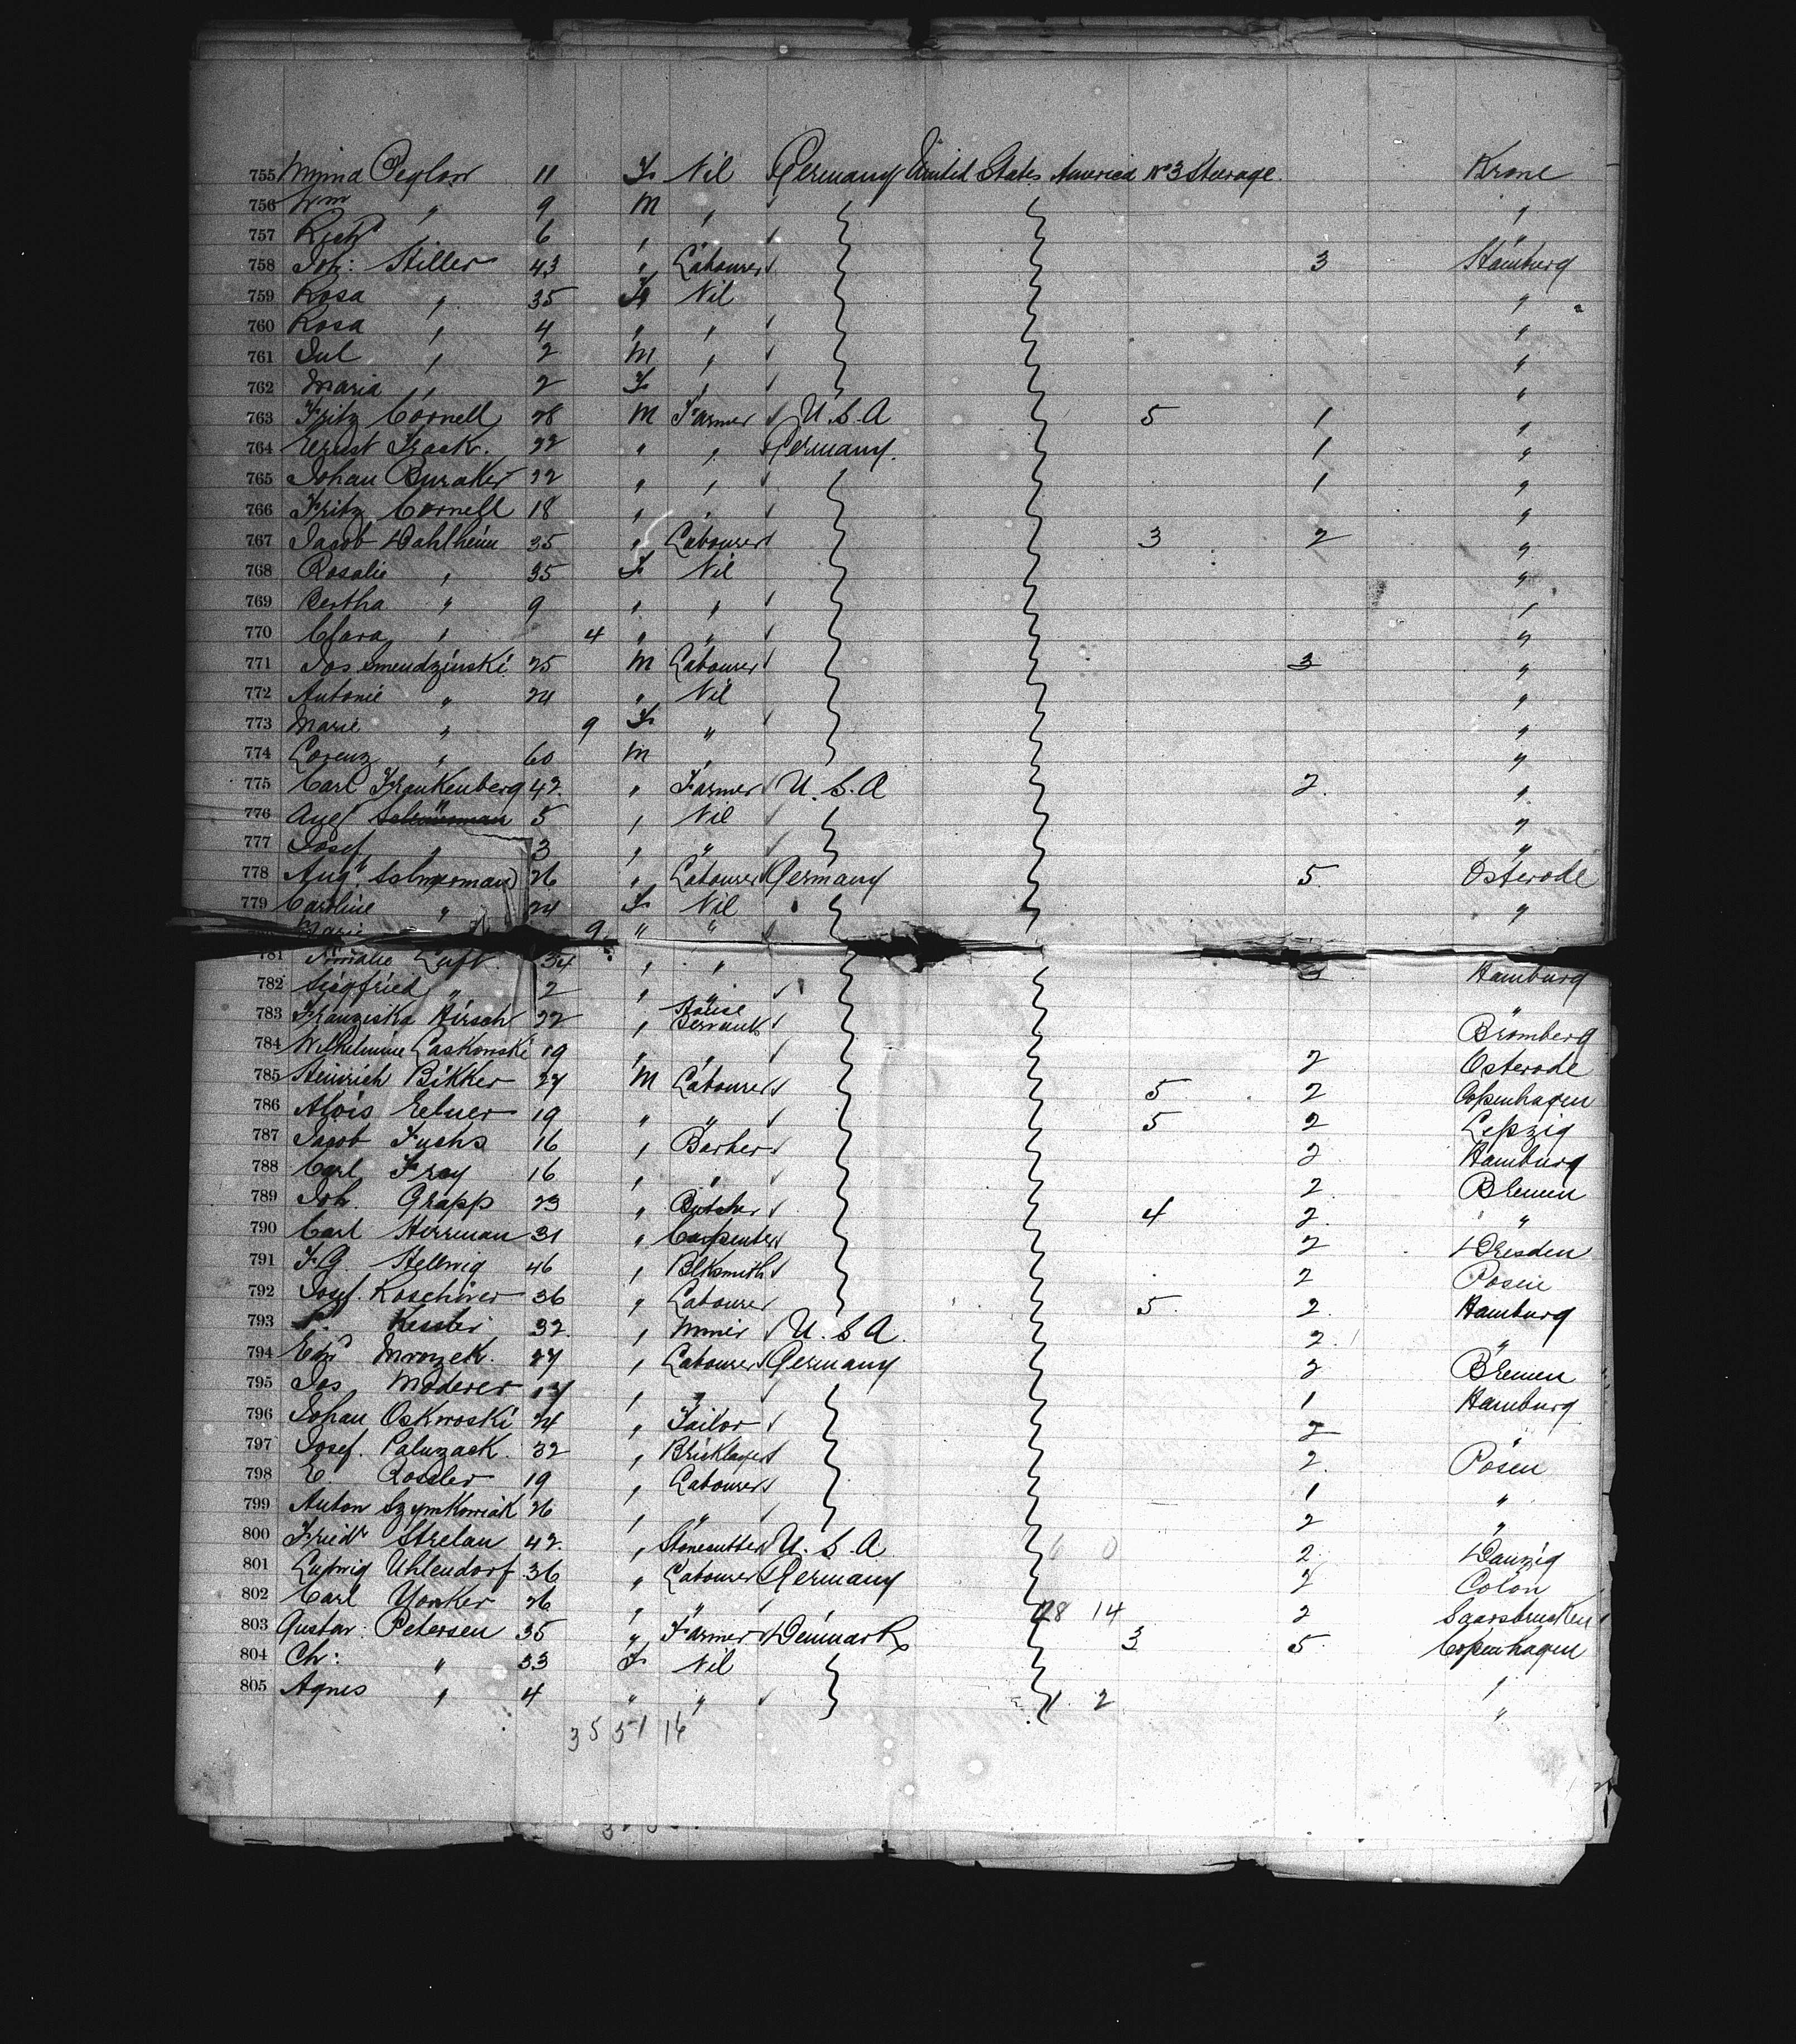 755 Minna Peglow 11 F Nil Germany United States America No 3 Steerage Krone
756 Wm " 9 M " "
757 Richd " 6 " " "
758 Joh: Stiller 43 " Labourer 3 Hamburg
759 Rosa " 35 F Nil "
760 Rosa " 4 " " "
761 Jul " 2 M " "
762 Maria " 2 F " "
763 Fritz Cornell 28 M Farmer U.S.A 5 1 "
764 Ernst Frask. 22 " " Germany. 1 "
765 Johan Buraker 22 " " 1 "
766 Fritz Cornell 18 " " "
767 Jacob Dahlheim 35 " Labourer 3 2 "
768 Rosalie " 35 F Nil "
769 Bertha " 9 " " "
770 Clara " 4 " " "
771 Jos Smendzinski 25 M Labourer 3 "
772 Antonie " 24 " Nil "
773 Marie " 9 F " "
774 Lorenz " 60 M "
775 Carl Frankenberg 42 " Farmer U.S.A 2. "
776 Aug 5 " Nil "
777 Josef " 3 " " "
778 Aug 26 " Labourer Germany 5 Osterode
779 Caroline " 24 F Nil "
Marie 9 " "
781 Amalie Luft. 34 " " Hamburg
782 Siegfried " 2 " " "
783 Franziska Hirsch 22 " House Servant Bromberg
784 Wilhelmine Laskowski 19 " " 2 Osterode
785 Heinrich Bikker 27 M Labourer 5 2 Copenhagen
786 Alois 19 " " 5 2 Leipzig
787 Jacob Fuchs 16 " Barber 2 Hamburg
788 Carl Fray 16 " " 2. Bremen
789 Joh. Grapp 23 " Butcher 4 2. "
790 Carl Herrman 31 " Carpenter 2 Dresden
791 F.G. Hellwig 46 " Blksmith 2 Posen
792 Josef. Koschiner 36 " Labourer 5. 2. Hamburg
793 Kessler 32. " Miner U.S.A. 2. "
794 Edw Mrozek. 27 " Labourer Germany 2 Bremen
795 Jos Moderer 17 " " 1 Hamburg
796 Johan Oskwoski 24 " Tailor 2 "
797 Josef. Paluzack. 32 " Bricklayer 2. Posen
798 E Rossler 19 " Labourer 1 "
799 Anton Szymkowiak 26 " " 2 "
800 Friedr Strelau 42 " Stonecutter U.S.A 6 0 2. Danzig
801 Ludwig Uhlendorf 36 " Labourer Germany 2 Colon
802 Carl Yonker 26 " " 28 14 2 Saarsbrucken
803 Gustav Petersen 35 " Farmer Denmark 3 5 Copenhagen
804 Ch: " 33 F Nil "
805 Agnes " 4 " " 1 2 "
35 51 16